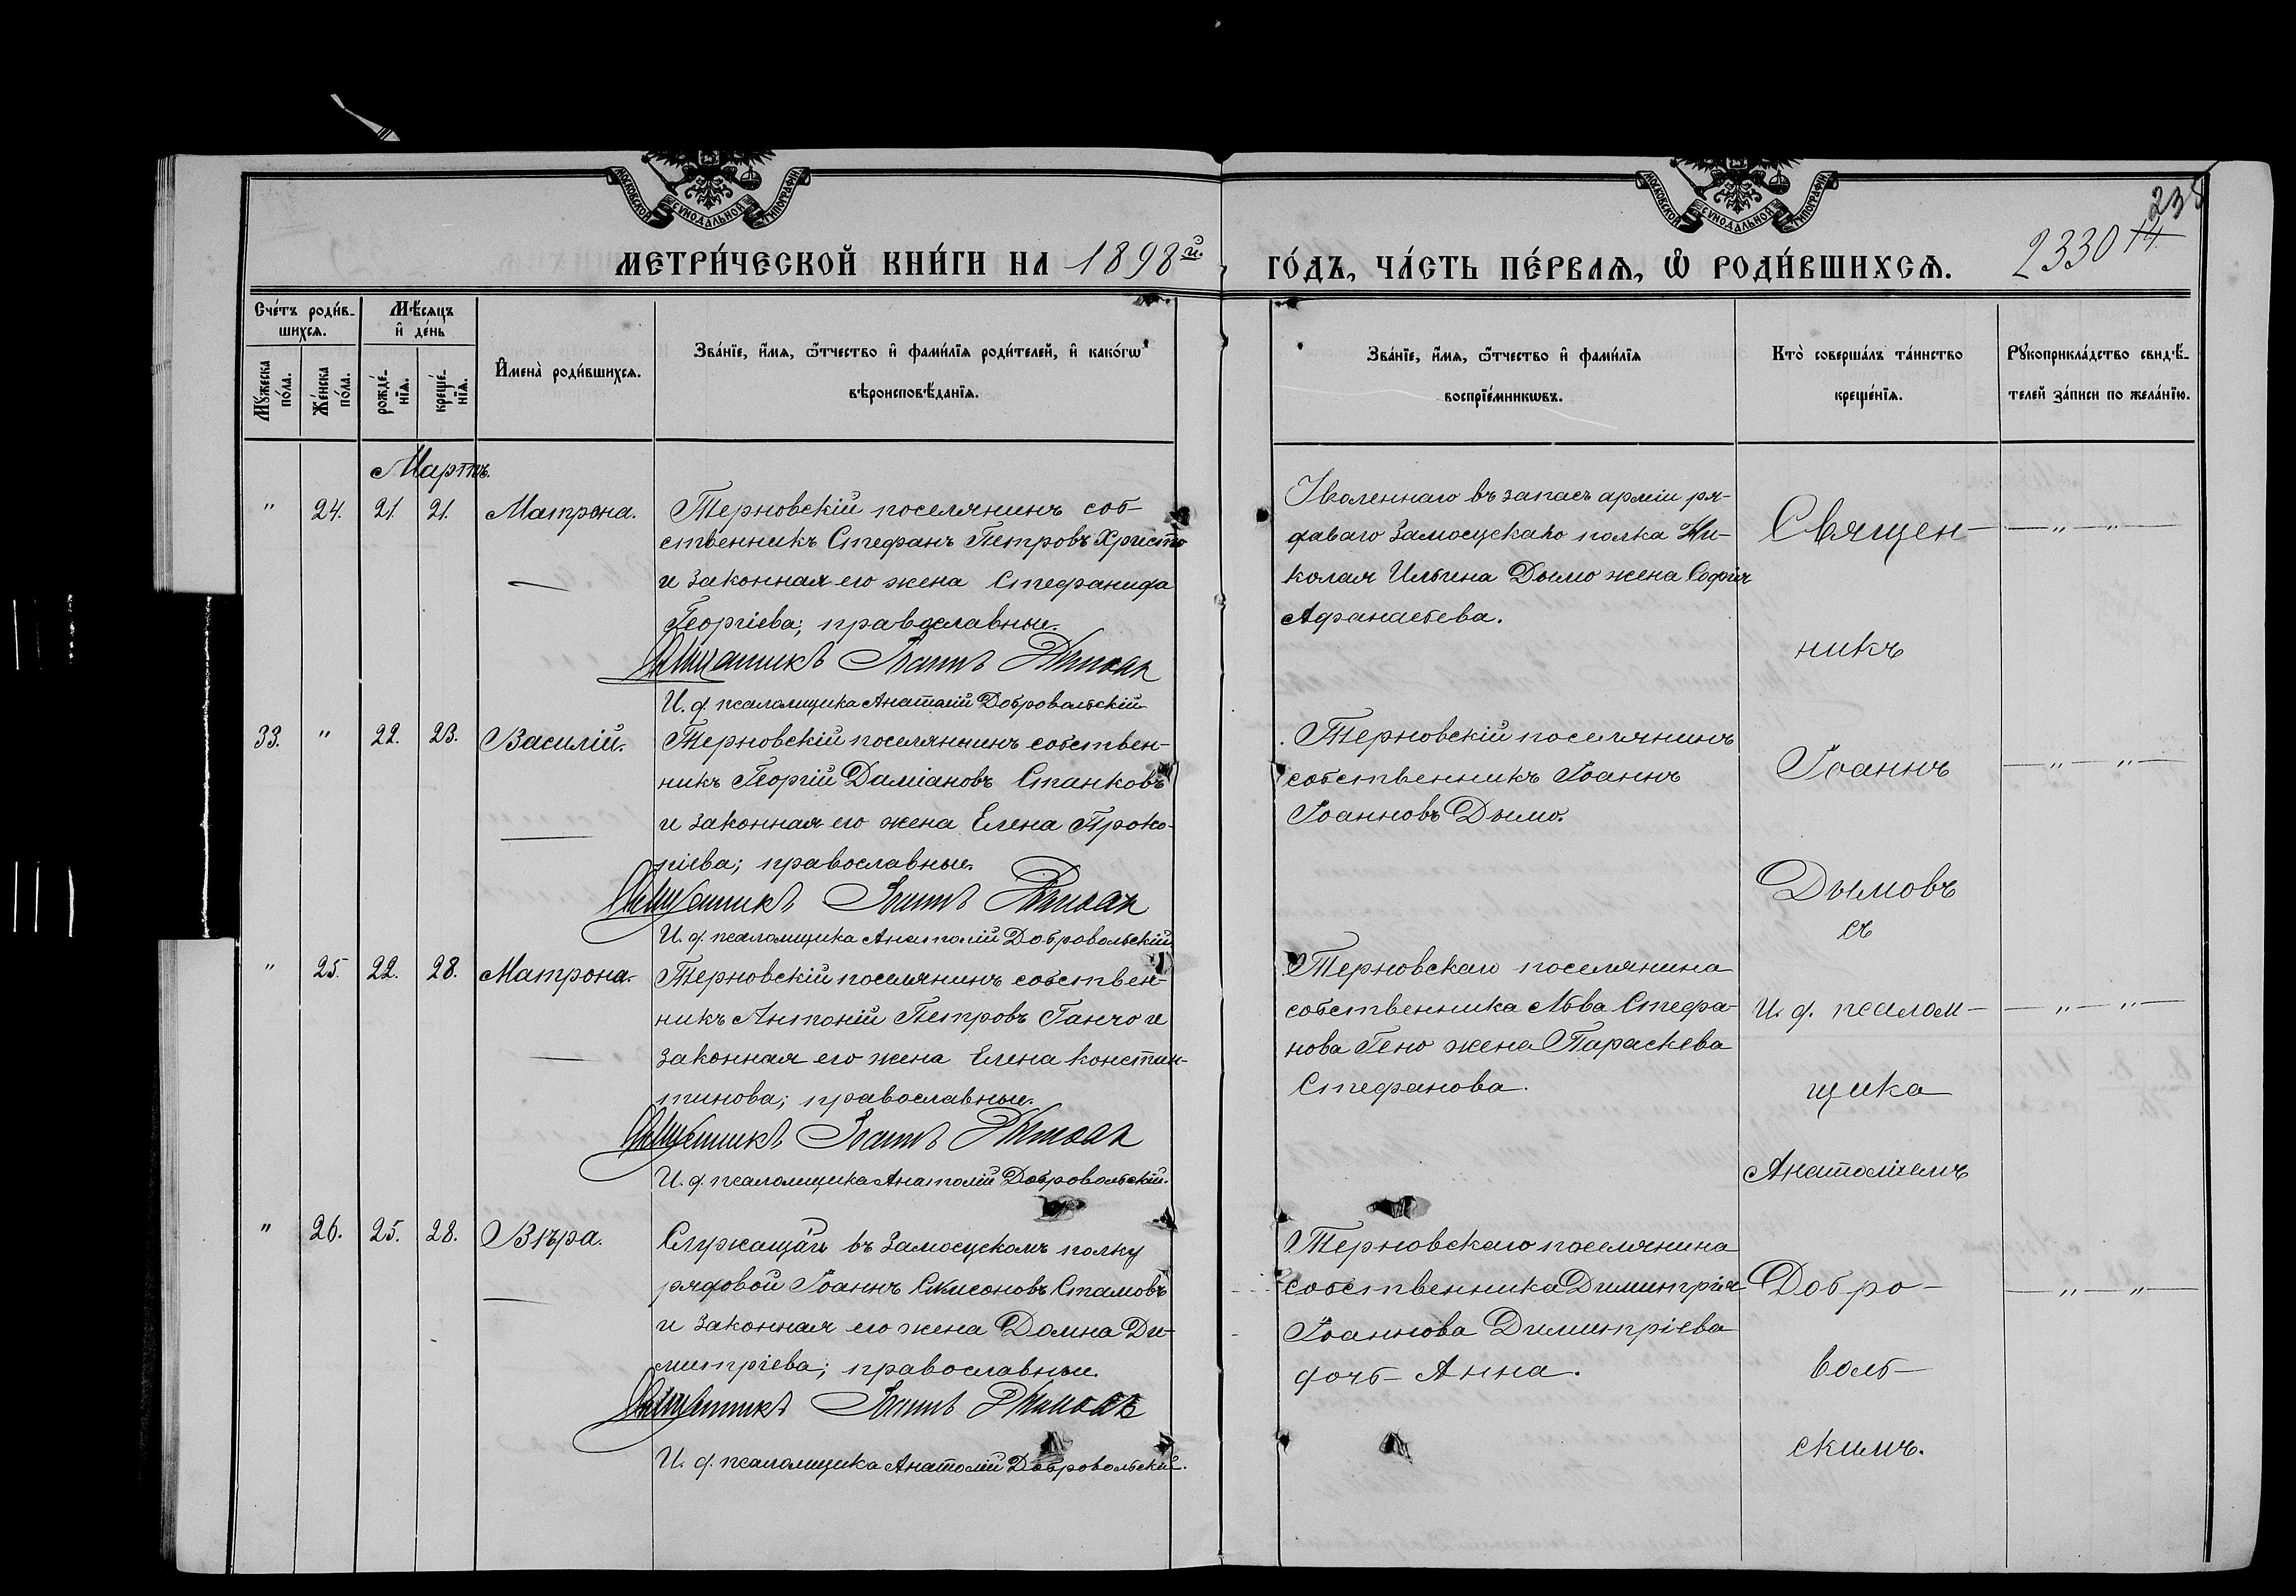 МОСКОВСКОЙ СѴНОДАЛЬНОЙ ТИПОГРАФІИ
МОСКОВСКОЙ СѴНОДАЛЬНОЙ ТИПОГРАФІИ
МЕТРИ́ЧЕСКОЙ КНИ́ГИ НА 1898й.
ГО́ДЪ, ЧА́СТЬ ПЕ́РВАѦ, Ѡ РОДИ́ВШИХСѦ.
2330
14.
Сче́тъ роди́в-
шихсѧ.
Мꙋжеска
по́ла.
Же́нска
по́ла.
Мѣсѧцъ
и҆ де́нь
рожде́-
нїѧ.
креще́-
нїѧ.
И҆мена̀ роди́вшихсѧ.
Зва́нїе, и҆́мѧ, ѻ҆́тчество и҆ фами́лїѧ роди́телей, и҆ како́гѡ
вѣроисповѣ́данїѧ.
Зва́нїе, и҆́мѧ, ѻ҆́тчество и҆ фами́лїѧ
воспрїе́мникѡвъ.
Кто̀ соверша́лъ та́инство
креще́нїѧ.
Рꙋкоприкла́дство свидѣ́-
телей за́писи по жела́нїю.
Мартъ.
" 24. 21. 21. Матрона.
Терновскій поселянинъ соб-
ственникъ Стефанъ Петровъ Христо
и законная его жена Стефанида
Георгіева; православные.
Священникъ Іоаннъ Дымовъ
И. д. псаломщика Анатолій Добровольскій
Уволеннаго въ запасъ арміи ря-
доваго Замосцскаго полка Ни-
колая Ильина Дымо жена Софія
Афанасьева.
33. " 22. 23. Василій.
Терновскій поселянинъ собствен-
никъ Георгій Даміановъ Станковъ
и законная его жена Елена Проко-
піева; православные.
Священникъ Іоаннъ Дымовъ
И. д. псаломщика Анатолій Добровольскій
Терновскій поселянинъ
собственникъ Іоаннъ
Іоанновъ Дымо.
" 25. 22. 28. Матрона.
Терновскій поселянинъ собствен-
никъ Антоній Петровъ Ганчо и
законная его жена Елена констан-
тинова; православные.
Священникъ Іоаннъ Дымовъ
И. д. псаломщика Анатолій Добровольскій.
Терновскаго поселянина
собственника Льва Стефа-
нова Гено жена Параскева
Стефанова.
" 26. 25. 28. Вѣра.
Служащій въ Замосцскомъ полку
рядовой Іоаннъ Стамовъ
и законная его жена Домна Ди-
митріева; православные.
Священникъ Іоаннъ Дымовъ
И. д. псаломщика Анатолій Добровольскій.
Терновскаго поселянина
собственника Димитрія
Іоаннова Димитріева
дочь Анна.
Священ-
никъ
Іоаннъ
Дымовъ
съ
И. д. псалом-
щика
Анатоліемъ
Добро-
воль-
скимъ.
— " — " —
— " — " —
— " — " —
— " — " —